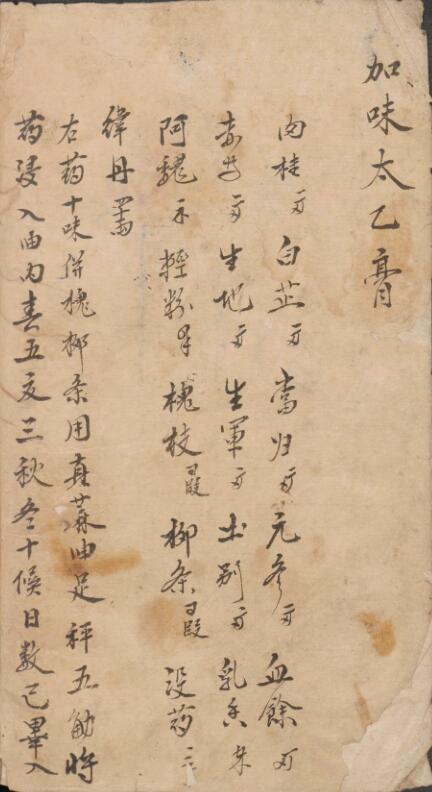 加味太乙膏
肉桂 白芷 當归 元參 血餘
赤芍 生地 生軍 土别 乳香
阿魏 輕粉 槐枝 段 柳条 段 没药
鍏丹
右药十味併槐柳条用真蔴油足秤五觔將
药浸入油内春五夏三秋冬十候日数已畢入